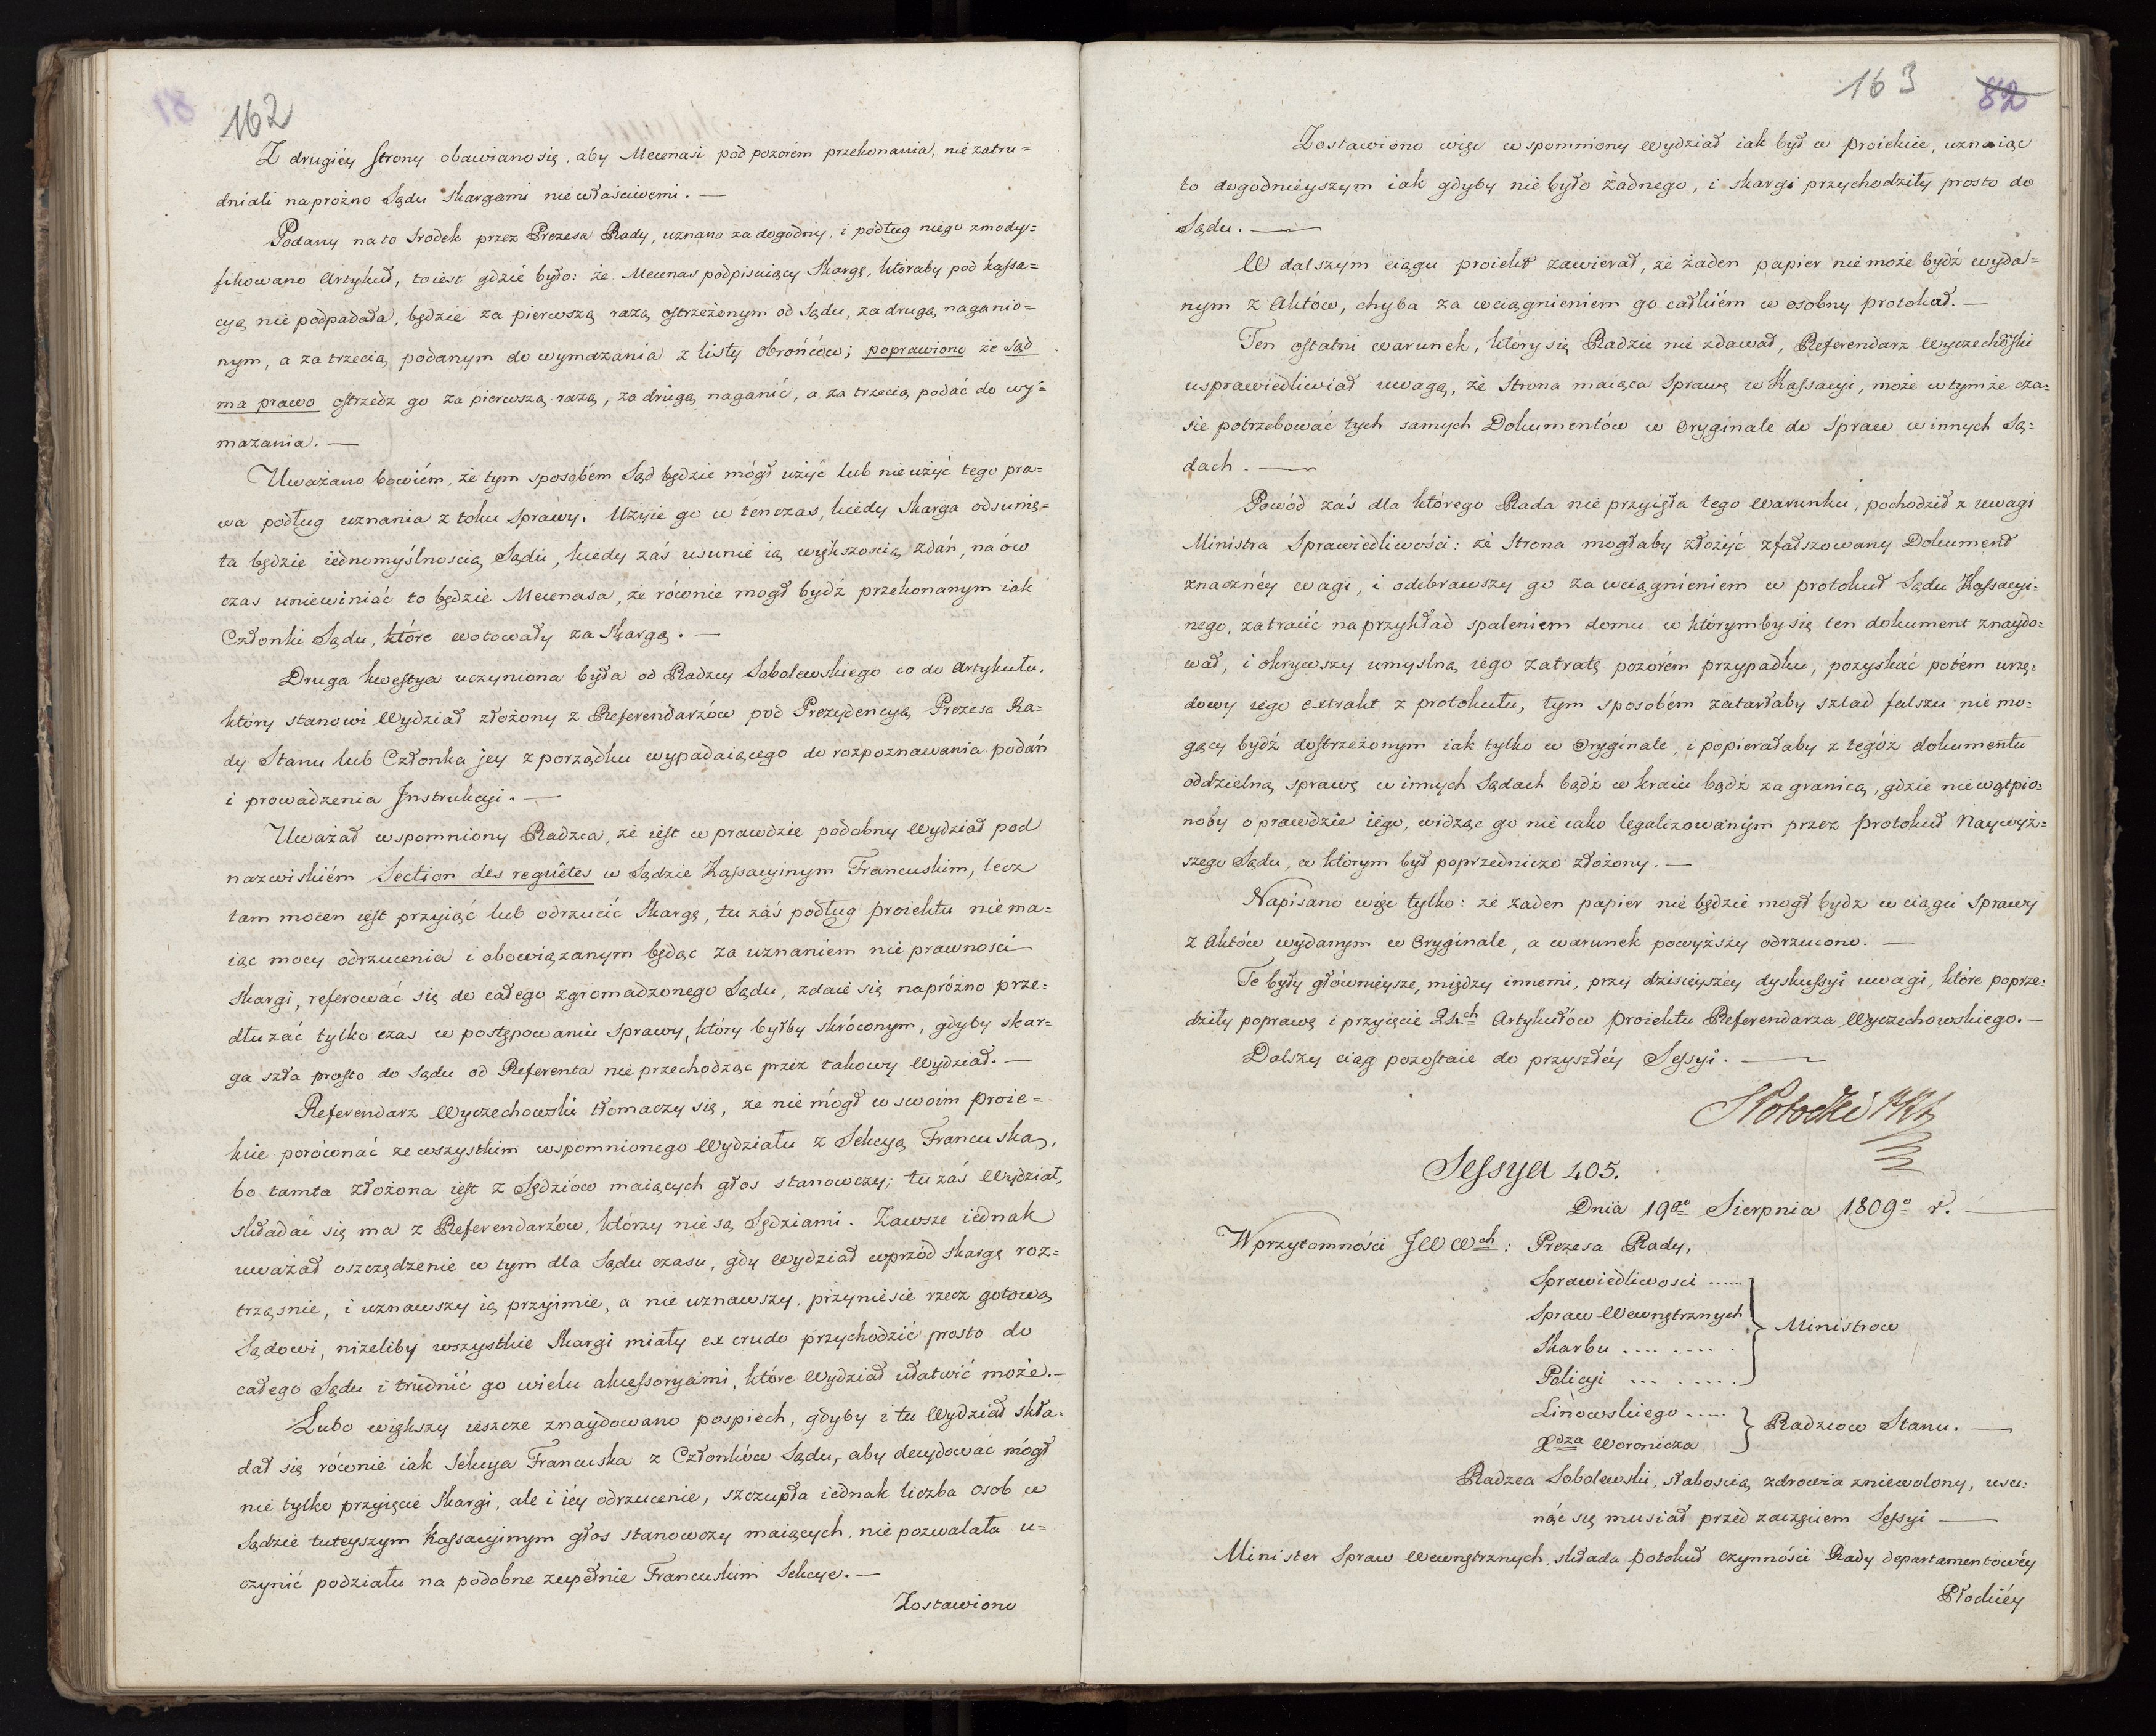 162
Z drugiéy strony obawiano się, aby Mecenasi pod pozorem przekonania, nie zatru=
dniali napróżno Sądu skargami niewłaściwemi. —
Podany na to srodek przez Prezesa Rady, uznano za dogodny, i podług niego zmody=
fikowano Artykuł, toiest gdzie było: że Mecenas podpisuiący Skargę, któraby pod kassa=
cyą nie podpadała, będzie za pierwszą razą ostrzeżonym od Sądu, za drugą naganio=
nym, a za trzecią podanym do wymazania z listy Obrońców; poprawiono że Sąd
ma prawo ostrzedz go za pierwszą razą, za drugą naganić, a za trzecią podać do wy=
mazania. —
Uważano bowiém, że tym sposobém Sąd będzie mógł użyć lub nieużyć tego pra=
wa podług uznania z toku Sprawy. Użyie go w ten czas, kiedy Skarga odsunię=
ta będzie iednomyślnoscią Sądu, kiedy zaś usunie ią większoscią zdań, na ów
czas uniewiniać to będzie Mecenasa, że równie mogł bydź przekonanym iak
Członki Sądu, które wotowały za Skargą. —
Druga kwestya uczyniona była od Radzcy Sobolewskiego co do Artykułu,
który stanowi Wydział złożony z Referendarzów pod Prezydencyą Prezesa Ra=
dy Stanu lub Członka jey z porządku wypadaiącego do rozpoznawania podań
i prowadzenia Instrukcyi. —
Uważał wspomniony Radzca, że iest wprawdzie podobny Wydział pod
nazwiskiém Section des requêtes w Sądzie Kassacyinym Francuskim, lecz
tam mocen iest przyiąć lub odrzucić Skargę, tu zaś podług proiektu nie ma=
iąc mocy odrzucenia i obowiązanym będąc za uznaniem nieprawnosci
Skargi, referować się do całego zgromadzonego Sądu, zdaie się napróżno prze=
dłużać tylko czas w postępowaniu sprawy, który byłby skróconym, gdyby skar=
ga szła prosto do Sądu od Referenta nie przechodząc przez takowy Wydział. —
Referendarz Wyczechowski tłomaczy się, że nie mógł w swoim proie=
kcie porównać ze wszystkim wspomnionego Wydziału z Sekcyą Francuską,
bo tamta złożona iest z Sędziów maiących głos stanowczy; tu zaś Wydział,
składać się ma z Referendarzów, którzy nie są Sędziami. Zawsze iednak
uważał oszczędzenie w tym dla Sądu czasu, gdy Wydział wprzód skargę roz=
trząsnie, i uznawszy ią przyimie, a nie uznawszy, przyniesie rzecz gotową
Sądowi, niżeliby wszystkie Skargi miały ex crudo przychodzić prosto do
całego Sądu i trudnić go wielu akcessoryami, które Wydział ułatwić może. —
Lubo większy ieszcze znaydowano pospiech, gdyby i tu Wydział skła=
dał się równie iak Sekcya Francuska z Członków Sądu, aby decydować mógł
nie tylko przyięcie Skargi, ale i iéy odrzucenie, szczupła iednak liczba osob w
Sądzie tuteyszym Kassacyinym głos stanowczy maiących, nie pozwalała u=
czynić podziału na podobne zupełnie Francuskim Sekcye. —
Zostawiono
163 82
Zostawiono więc wspomniony Wydział iak był w proiekcie, uznaiąc
to dogodnieyszym iak gdyby nie było żadnego, i skargi przychodziły prosto do
Sądu. —
W dalszym ciągu proiekt zawierał, że żaden papier nie może bydź wyda=
nym z Aktów, chyba za wciągnieniem go całkiém w osobny protokuł. —
Ten ostatni warunek, który się Radzie nie zdawał, Referendarz Wyczechowski
usprawiedliwiał uwagą, że Strona maiąca Sprawę w Kassacyi, może w tymże cza=
sie potrzebować tych samych Dokumentów w Oryginale do Spraw w innych Są=
dach. —
Powód zaś dla którego Rada nie przyięła tego Warunku, pochodził z uwagi
Ministra Sprawiedliwości: że Strona mogłaby złożyć zfałszowany Dokument
znacznéy wagi, i odebrawszy go za wciągnieniem w protokuł Sądu Kassacyi=
nego, zatracić na przykład spaleniem domu w którymby się ten dokument znaydo=
wał, i okrywszy umyslną iego zatratę pozorém przypadku, pozyskać potém urzę=
dowy iego extrakt z protokułu, tym sposobém zatarłaby szlad falszu nie mo=
gący bydź dostrzeżonym iak tylko w Oryginale, i popierałaby z tegóż dokumentu
oddzielną sprawę w innych Sądach bądź w kraiu bądź za granicą, gdzie nie wątpio=
noby o prawdzie iego, widząc go nie iako legalizowanym przez protokuł Naywyż=
szego Sądu, w którym był poprzedniczo złożony. —
Napisano więc tylko: że żaden papier nie będzie mogł bydz w ciągu Sprawy
z Aktów wydanym w Oryginale, a warunek powyższy odrzucono. —
Te były główniéysze, między innemi, przy dzisieyszéy dyskussyi uwagi, które poprze=
dziły poprawę i przyięcie 24ch Artykułów proiektu Referendarza Wyczechowskiego. —
Dalszy ciąg pozostaie do przyszłéy Sessyi. —
SPotocki
Sessya 405.
Dnia 19go Sierpnia 1809o r. —
W przytomności JWWch: Prezesa Rady,
Sprawiedliwosci ......
Spraw Wewnętrznych
Skarbu .... .... .
Policyi ... .....
Ministrow
Linowskiego .....
Xdza Woronicza
Radzcow Stanu. —
Radzca Sobolewski, słaboscią zdrowia zniewolony, usu=
nąć się musiał przed zaczęciem Sessyi —
Minister Spraw Wewnętrznych, składa potokuł czynności Rady departamentowéy
Płockiéy